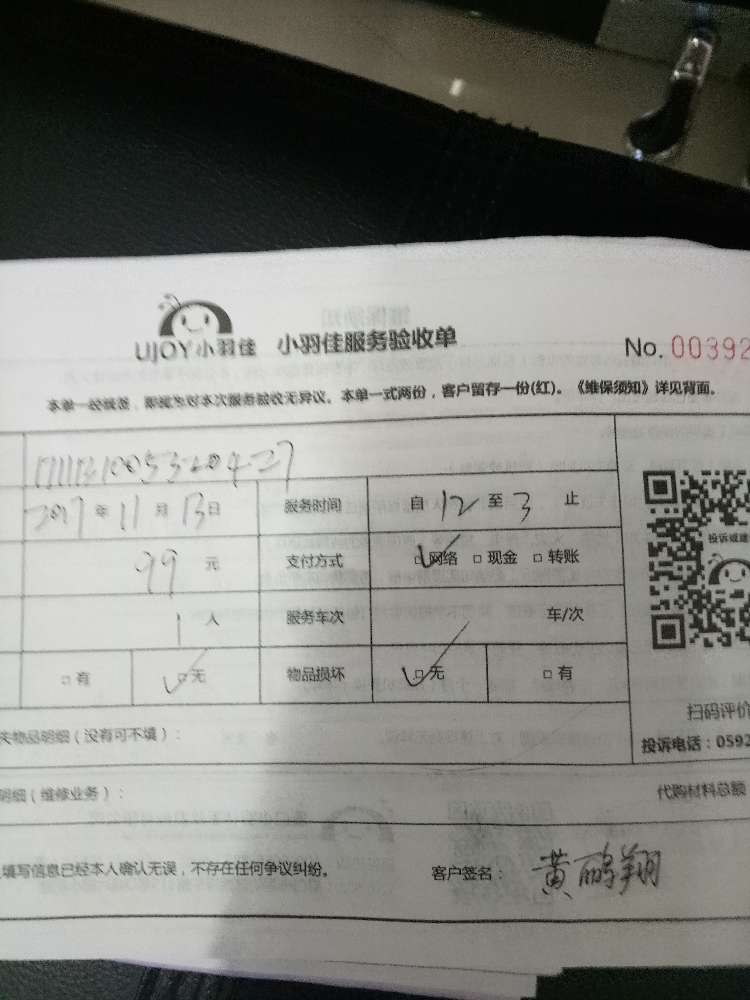 UJOY小羽佳 小羽佳服务验收单 No. 00392
本单一经续签，即视为对本次服务验收无异议。本单一式两份，客户留存一份(红)。《维保须知》详见背面。
2017年11月13日 服务时间 自12至3止
99元 支付方式 □网络 □现金 □转账
投诉或建
1人 服务车次 车/次
□有 □无 物品损坏 □无 □有
扫码评价
失物品明细（没有可不填）：
投诉电话：0592
明细（维修业务）： 代购材料总额
填写信息已经本人确认无误，不存在任何争议纠纷。 客户签名：黄鹏翔